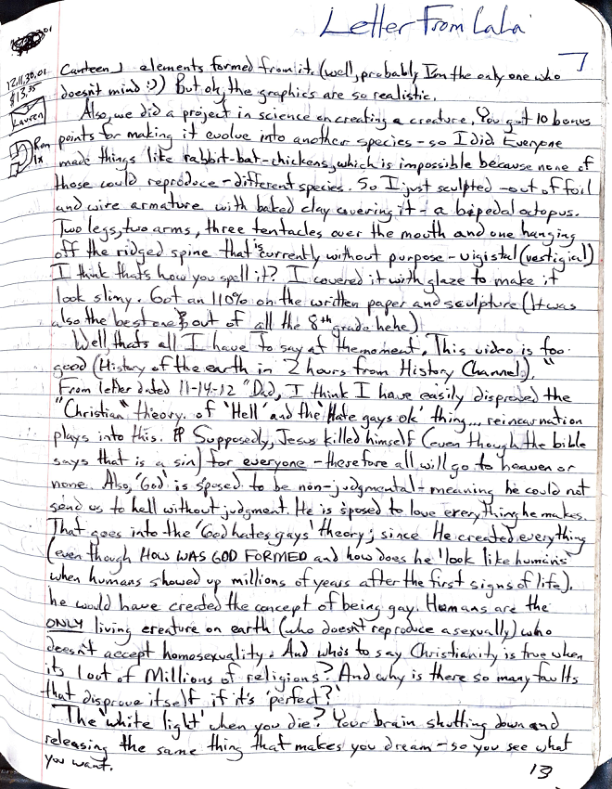 Letter From LaLa
Canteen, elements formed from it. (well, probably I'm the only one who
doesn't mind :)) But oh, the graphics are so realistic.
Also, we did a project in science on creating a creature. You got 10 bonus
points for making it evolve into another species - so I did Everyone
made things like rabbit-bat-chickens, which is impossible because none of
those could reproduce - different species. So I just sculpted - out of foil
and wire armature with baked clay covering it - a bipedal octopus.
Two legs, two arms, three tentacles over the mouth and one hanging
off the ridged spine that is currently without purpose - vigistal (vestigial)
I think thats how you spell it? I covered it with glaze to make it
look slimy. Got an 110% on the written paper and sculpture (It was
also the best one out of all the 8th grade hehe)
Well, thats all I have to say at the moment. This video is too
good (History of the earth in 2 hours from History Channel)."
From letter dated 11-14-12 "Dad, I think I have easily disproved the
"Christian" theory of 'Hell' and the 'Hate gays ok' thing... reincarnation
plays into this. Supposedly, Jesus killed himself (even though the bible
says that is a sin) for everyone - therefore all will go to heaven or
none. Also, 'God' is sposed to be non-judgmental - meaning he could not
send us to hell without judgment. He is sposed to love everything he makes.
That goes into the 'God hates gays' theory; since He created everything
(even though HOW WAS GOD FORMED and how does he 'look like humans'
when humans showed up millions of years after the first signs of life).
he would have created the concept of being gay. Humans are the
ONLY living creature on earth (who doesn't reproduce asexually) who
doesn't accept homosexuality. And who's to say Christianity is true when
its 1 out of Millions of religions? And why is there so many faults
that disprove itself if it's 'perfect?'
The 'white light' when you die? Your brain shutting down and
releasing the same thing that makes you dream - so you see what
you want.
13
12.11.30.01
$13.35
Lauren
Ron
1x